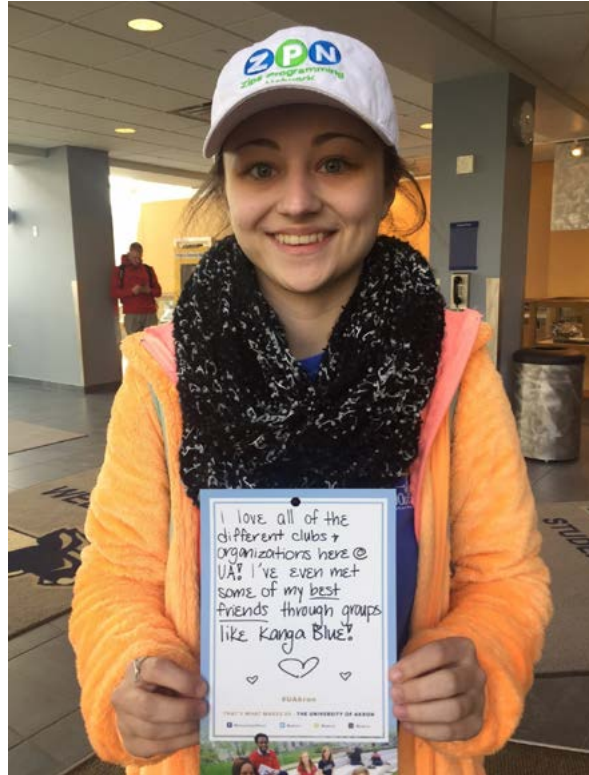 ZPN
Zips Programming
Network
WEL
STUDE
I love all of the
different clubs +
organizations here @
UA! I've even met
some of my best
friends through groups
like Kanga Blue!
#UAkron
THAT'S WHAT MAKES US - THE UNIVERSITY OF AKRON